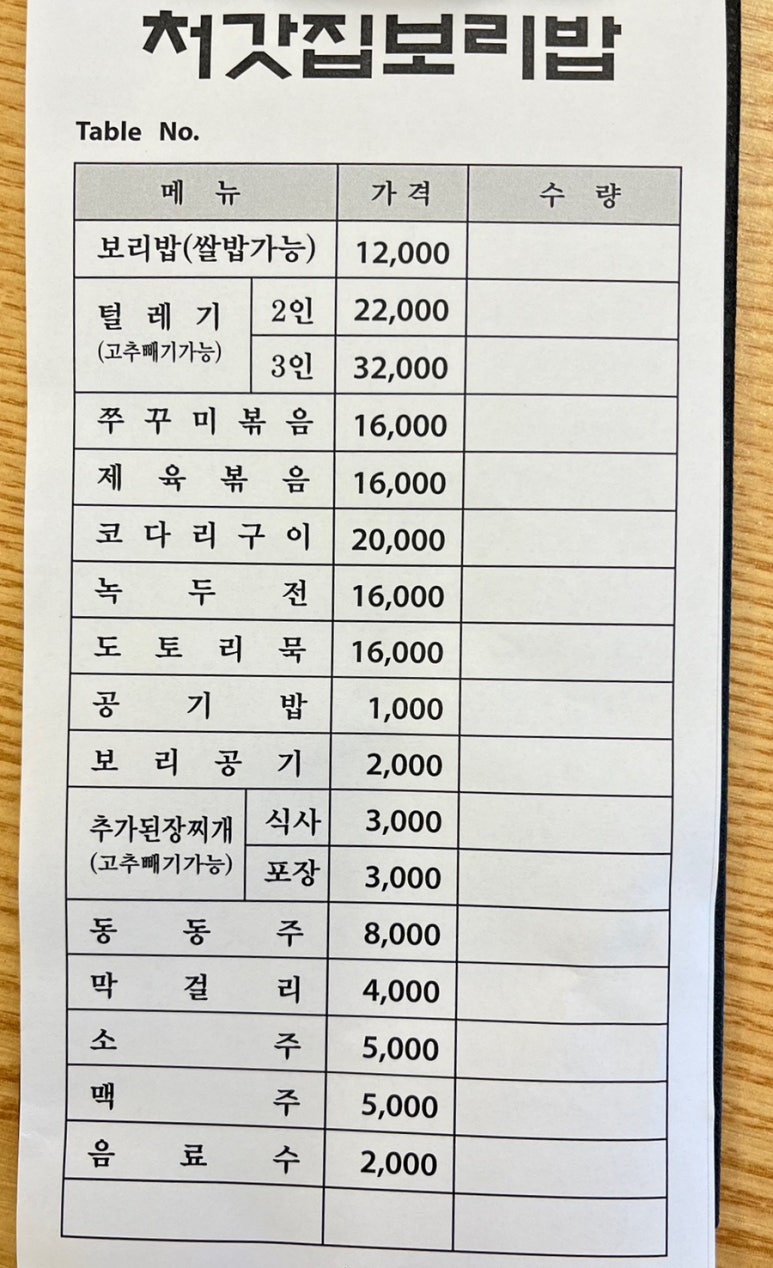 처갓집보리밥
Table No.
메 뉴 가 격 수 량
보리밥(쌀밥가능) 12,000
털 레 기 2인 22,000
(고추빼기가능) 3인 32,000
쭈 꾸 미 볶 음 16,000
제 육 볶 음 16,000
코 다 리 구 이 20,000
녹 두 전 16,000
도 토 리 묵 16,000
공 기 밥 1,000
보 리 공 기 2,000
추가된장찌개 식사 3,000
(고추빼기가능) 포장 3,000
동 동 주 8,000
막 걸 리 4,000
소 주 5,000
맥 주 5,000
음 료 수 2,000